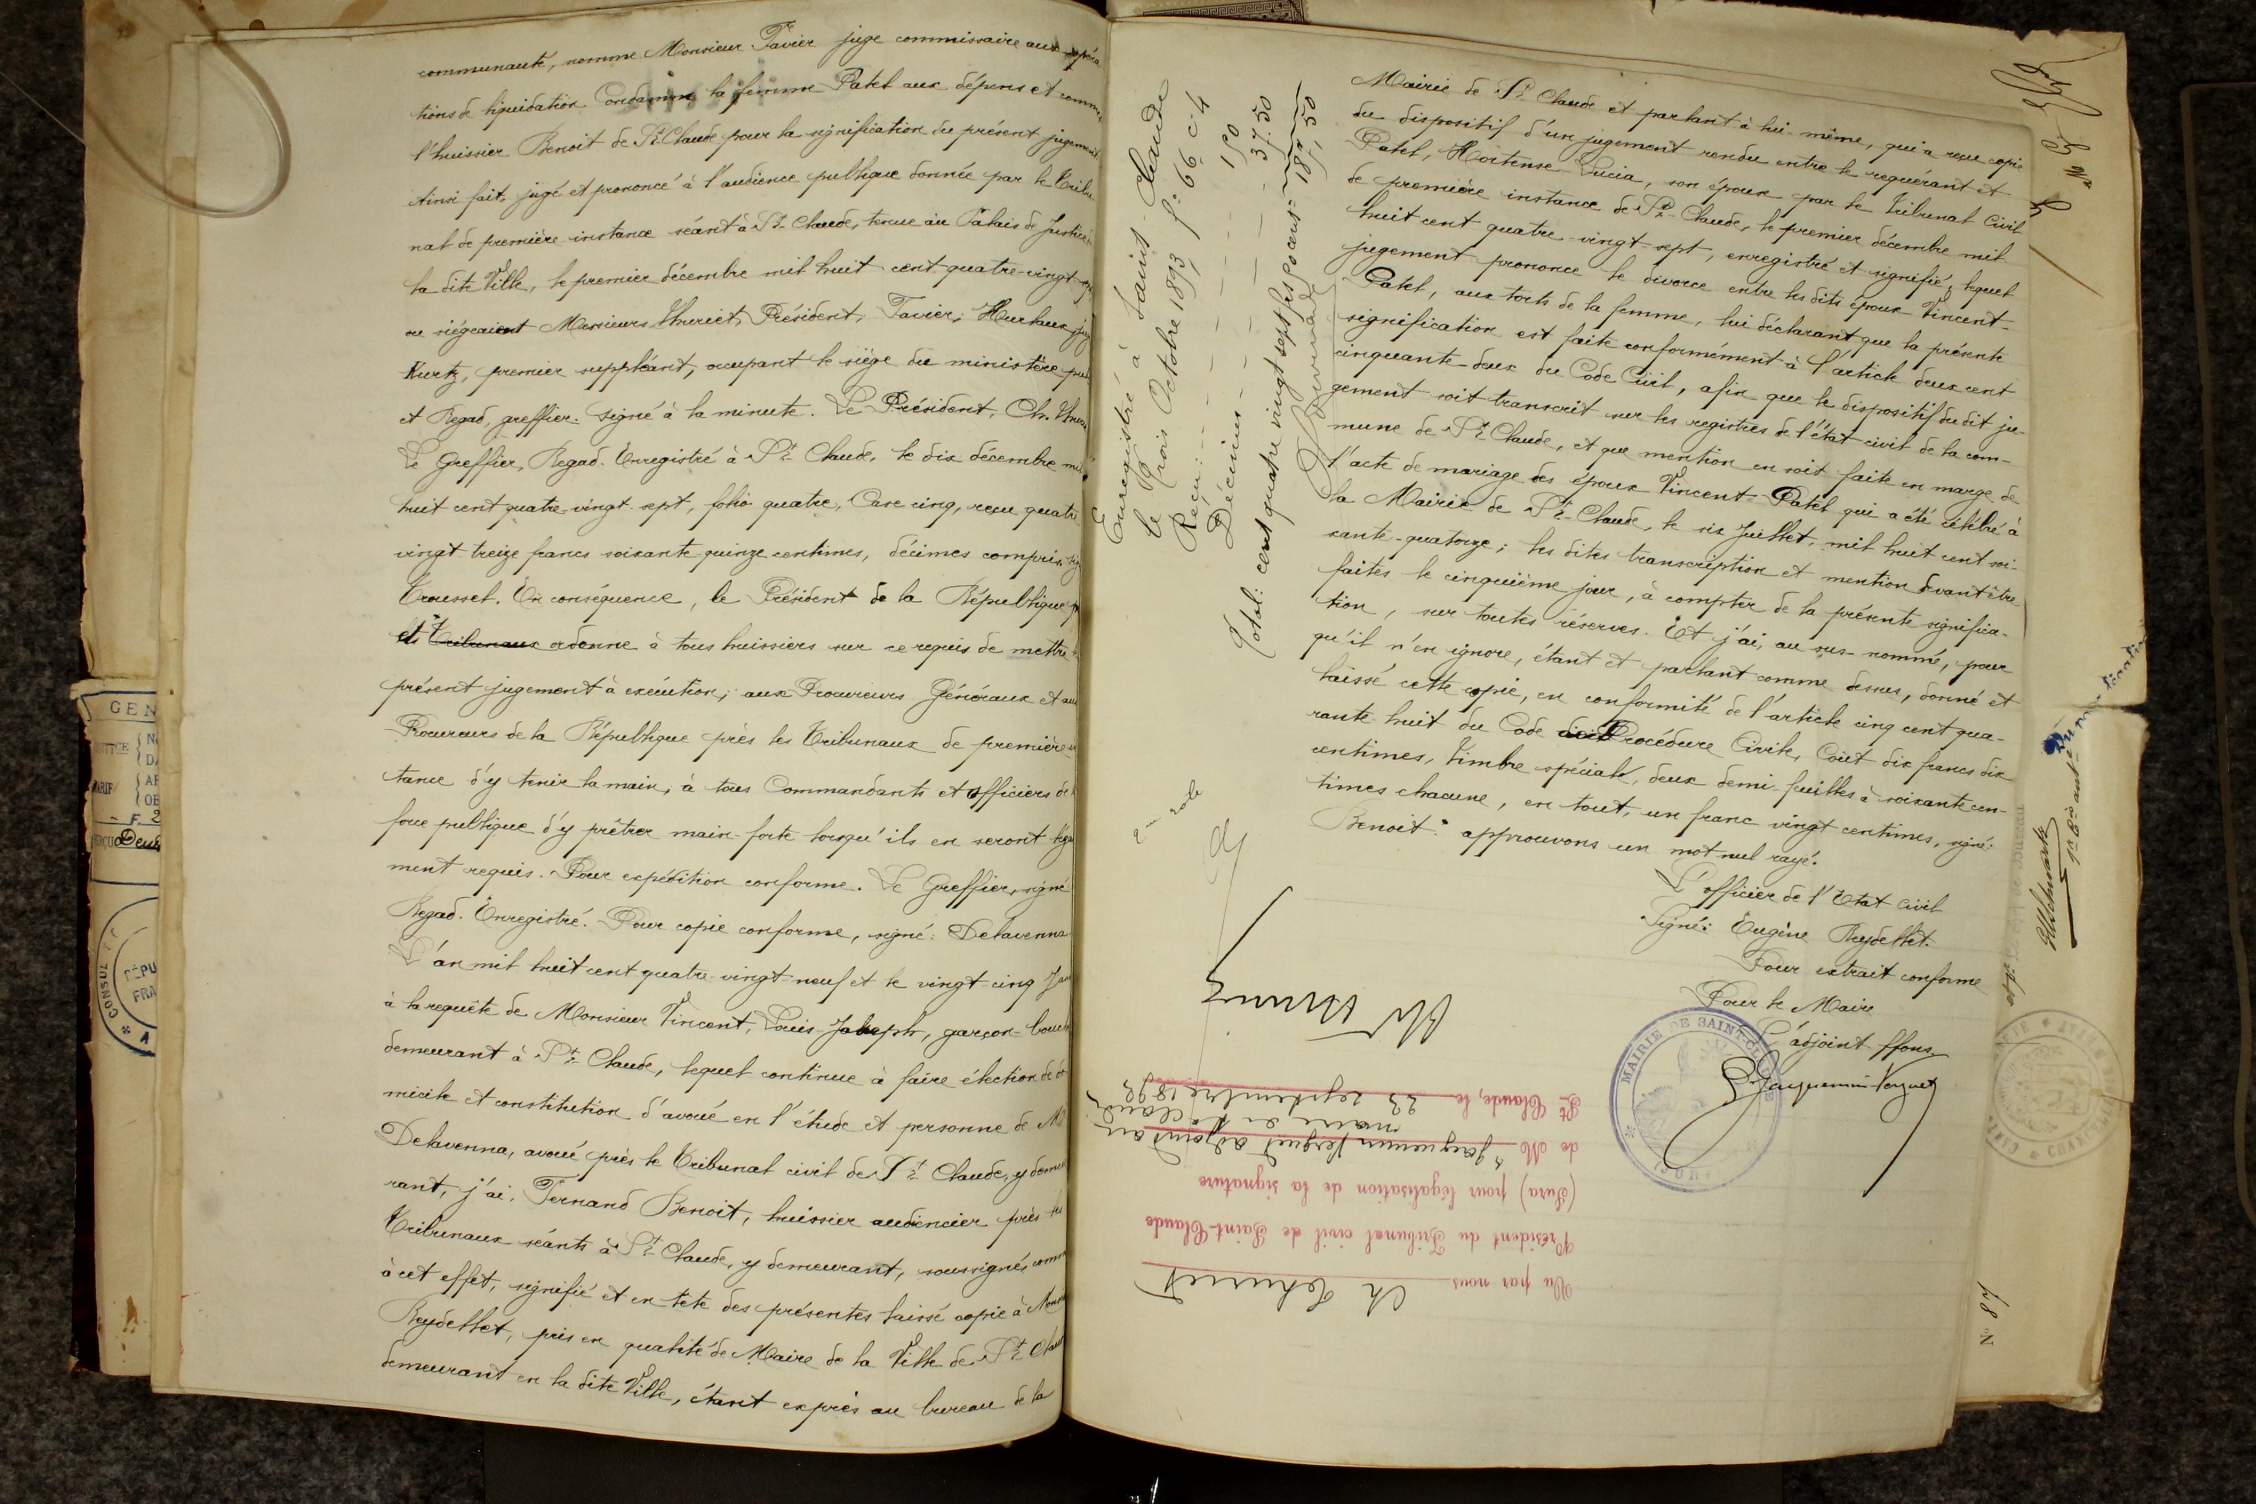 communauté, nomme Monsieur Favier juge commissaire aux opéra-
tions de liquidation Condamne la femme Patel aux dépens et commet
l'huissier Benoit de St Claude pour la signification du présent jugement.
Ainsi fait, jugé et prononcé à l'audience publique donnée par le Tribu-
nal de première instance séant à St Claude, tenue au Palais de Justice de
la dite Ville, le premier décembre mil huit cent quatre-vingt-sept
où siégeaient Messieurs Thuriet, Président, Favier, Hurtaux, juges
Kurtz, premier suppléant, occupant le siège du ministère public
et Regad, greffier. Signé à la minute. Le Président, Ch. Thuriet
Le Greffier, Regad. Enregistré à St Claude, le dix décembre mil
huit cent quatre-vingt-sept, folio quatre, Case cinq, reçu quatre
vingt treize francs soixante quinze centimes, décimes compris. Signé
Trousset. En conséquence, le Président de la République
et Tribunaux ordonne à tous huissiers sur ce requis de mettre le
présent jugement à exécution; aux Procureurs Généraux et aux
Procureurs de la République près les Tribunaux de première ins-
tance d'y tenir la main, à tous Commandants et officiers de la
force publique d'y prêtrer main-forte lorsqu'ils en seront léga-
ment requis. Pour expédition conforme. Le Greffier, signé
Regad. Enregistré. Pour copie conforme, signé: Delavenna
L'an mil huit cent quatre-vingt-neuf et le vingt-cinq
à la requête de Monsieur Vincent, Louis-Joseph, garçon-boucher
demeurant à St Claude, lequel continue à faire élection de do-
micile et constitution d'avoué en l'étude et personne de Me
Delavenna, avoué près le Tribunal civil de St Claude, y demeu-
rant, j'ai, Fernand Benoit, huissier audiencier près les
Tribunaux séants à St Claude, y demeurant, soussignés commis
à cet effet, signifié et en tête des présentes laissé copie à Monsieur
Reydellet, pris en qualité de Maire de la Ville de St Claude
demeurant en la dite Ville, étant exprès au bureau de la
Mairie de St Claude et parlant à lui-même, qui a reçu copie
du dispositif d'un jugement rendu entre le requérant et
Patel, Hortense Lucia, son époux par le Tribunal Civil
de première instance de St-Claude, le premier décembre mil
huit cent quatre-vingt-sept, enregistré et signifié; lequel
jugement prononce le divorce entre les dits époux Vincent-
Patel, aux torts de la femme, lui déclarant que la présente
signification est faite conformément à l'article deux cent
cinquante-deux du Code Civil, afin que le dispositif du dit ju-
gement soit transcrit sur les registres de l'état civil de la com-
mune de St Claude, et que mention en soit faite en marge de
l'acte de mariage des époux Vincent-Patel qui a été célébré à
la Mairie de St-Claude, le six Juillet, mil huit cent soi-
xante-quatorze; les dites transcription et mention devant être
faites le cinquième jour, à compter de la présente significa-
tion, sur toutes réserves. Et j'ai, au sus-nommé, pour
qu'il n'en ignore, étant et parlant comme dessus, donné et
laissé cette copie, en conformité de l'article cinq cent qua-
rante-huit du Code de Procédure Civile, Coût dix francs dix
centimes, Timbre spécial, deux demi-feuilles à soixante cen-
times chacune, en tout, un franc vingt centimes, signé:
Benoit. approuvons un mot nul rayé.
L'officier de l'Etat Civil
Signé: Eugène Reydellet.
Pour extrait conforme
Pour le Maire
L'adjoint ffons
Jacquemin Verguet
MAIRIE DE SAINT-CLAUDE
(JURA)
Enregistré à Saint-Claude
le Trois Octobre 1893 fo 66 c. 4
Reçu: 150
Décimes 37.50
Total: cent quatre vingt sept fcs 50 cent 187,50
2e rôle
Vu par nous Ch Thuriet
Président du Tribunal civil de Saint-Claude
(Jura) pour légalisation de la signature
de M Jacquemin Verguet adjoint au
maire de St Claude
St Claude, le 23 septembre 1893
Ch Thuriet
No 87
GEN
F.
CONSUL
RÉPU
FRA